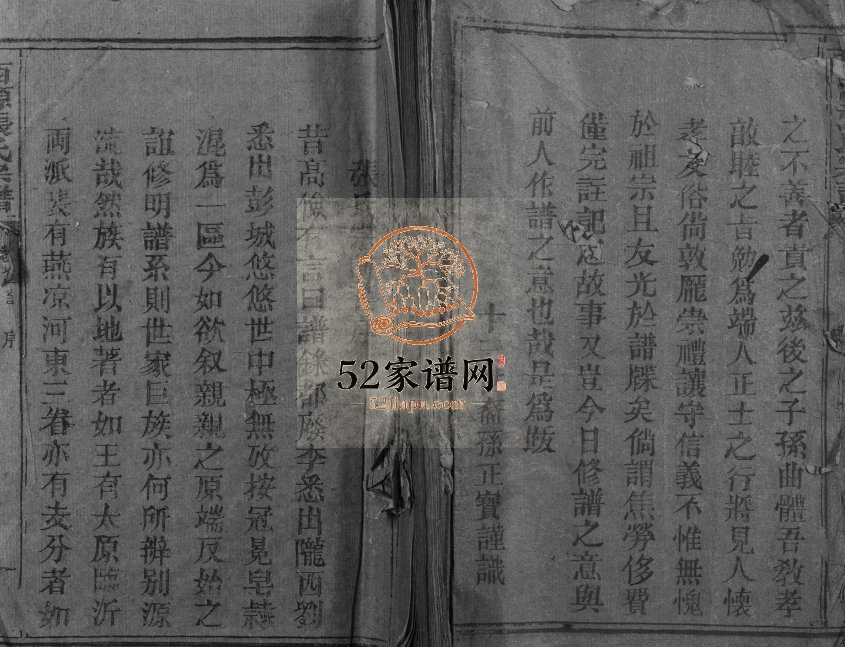 之不善者責之茲後之子孫曲體吾敎孝
敵睦之旨勉爲端人正士之行將見人懷
孝友俗尙敦龐崇禮讓守信義不惟無愧
於祖宗且友光於譜牒矣倘謂焦勞侈費
僅完註記故事又豈今日修譜之意與
前人作譜之意也哉是爲跋
十 裔孫正寳謹識
張
昔高儉有言曰譜錄都廢李悉出隴西劉
悉出彭城悠悠世中極無攷按冠冕皂隸
混爲一區今如欲叙親親之原端反始之
誼修明譜系則世家巨族亦何所辨別源
流哉然族有以地著者如王有太原臨沂
兩派裴有燕凉河東三眷亦有支分者如
張氏宗譜
序
52家谱网
52jiapu.com